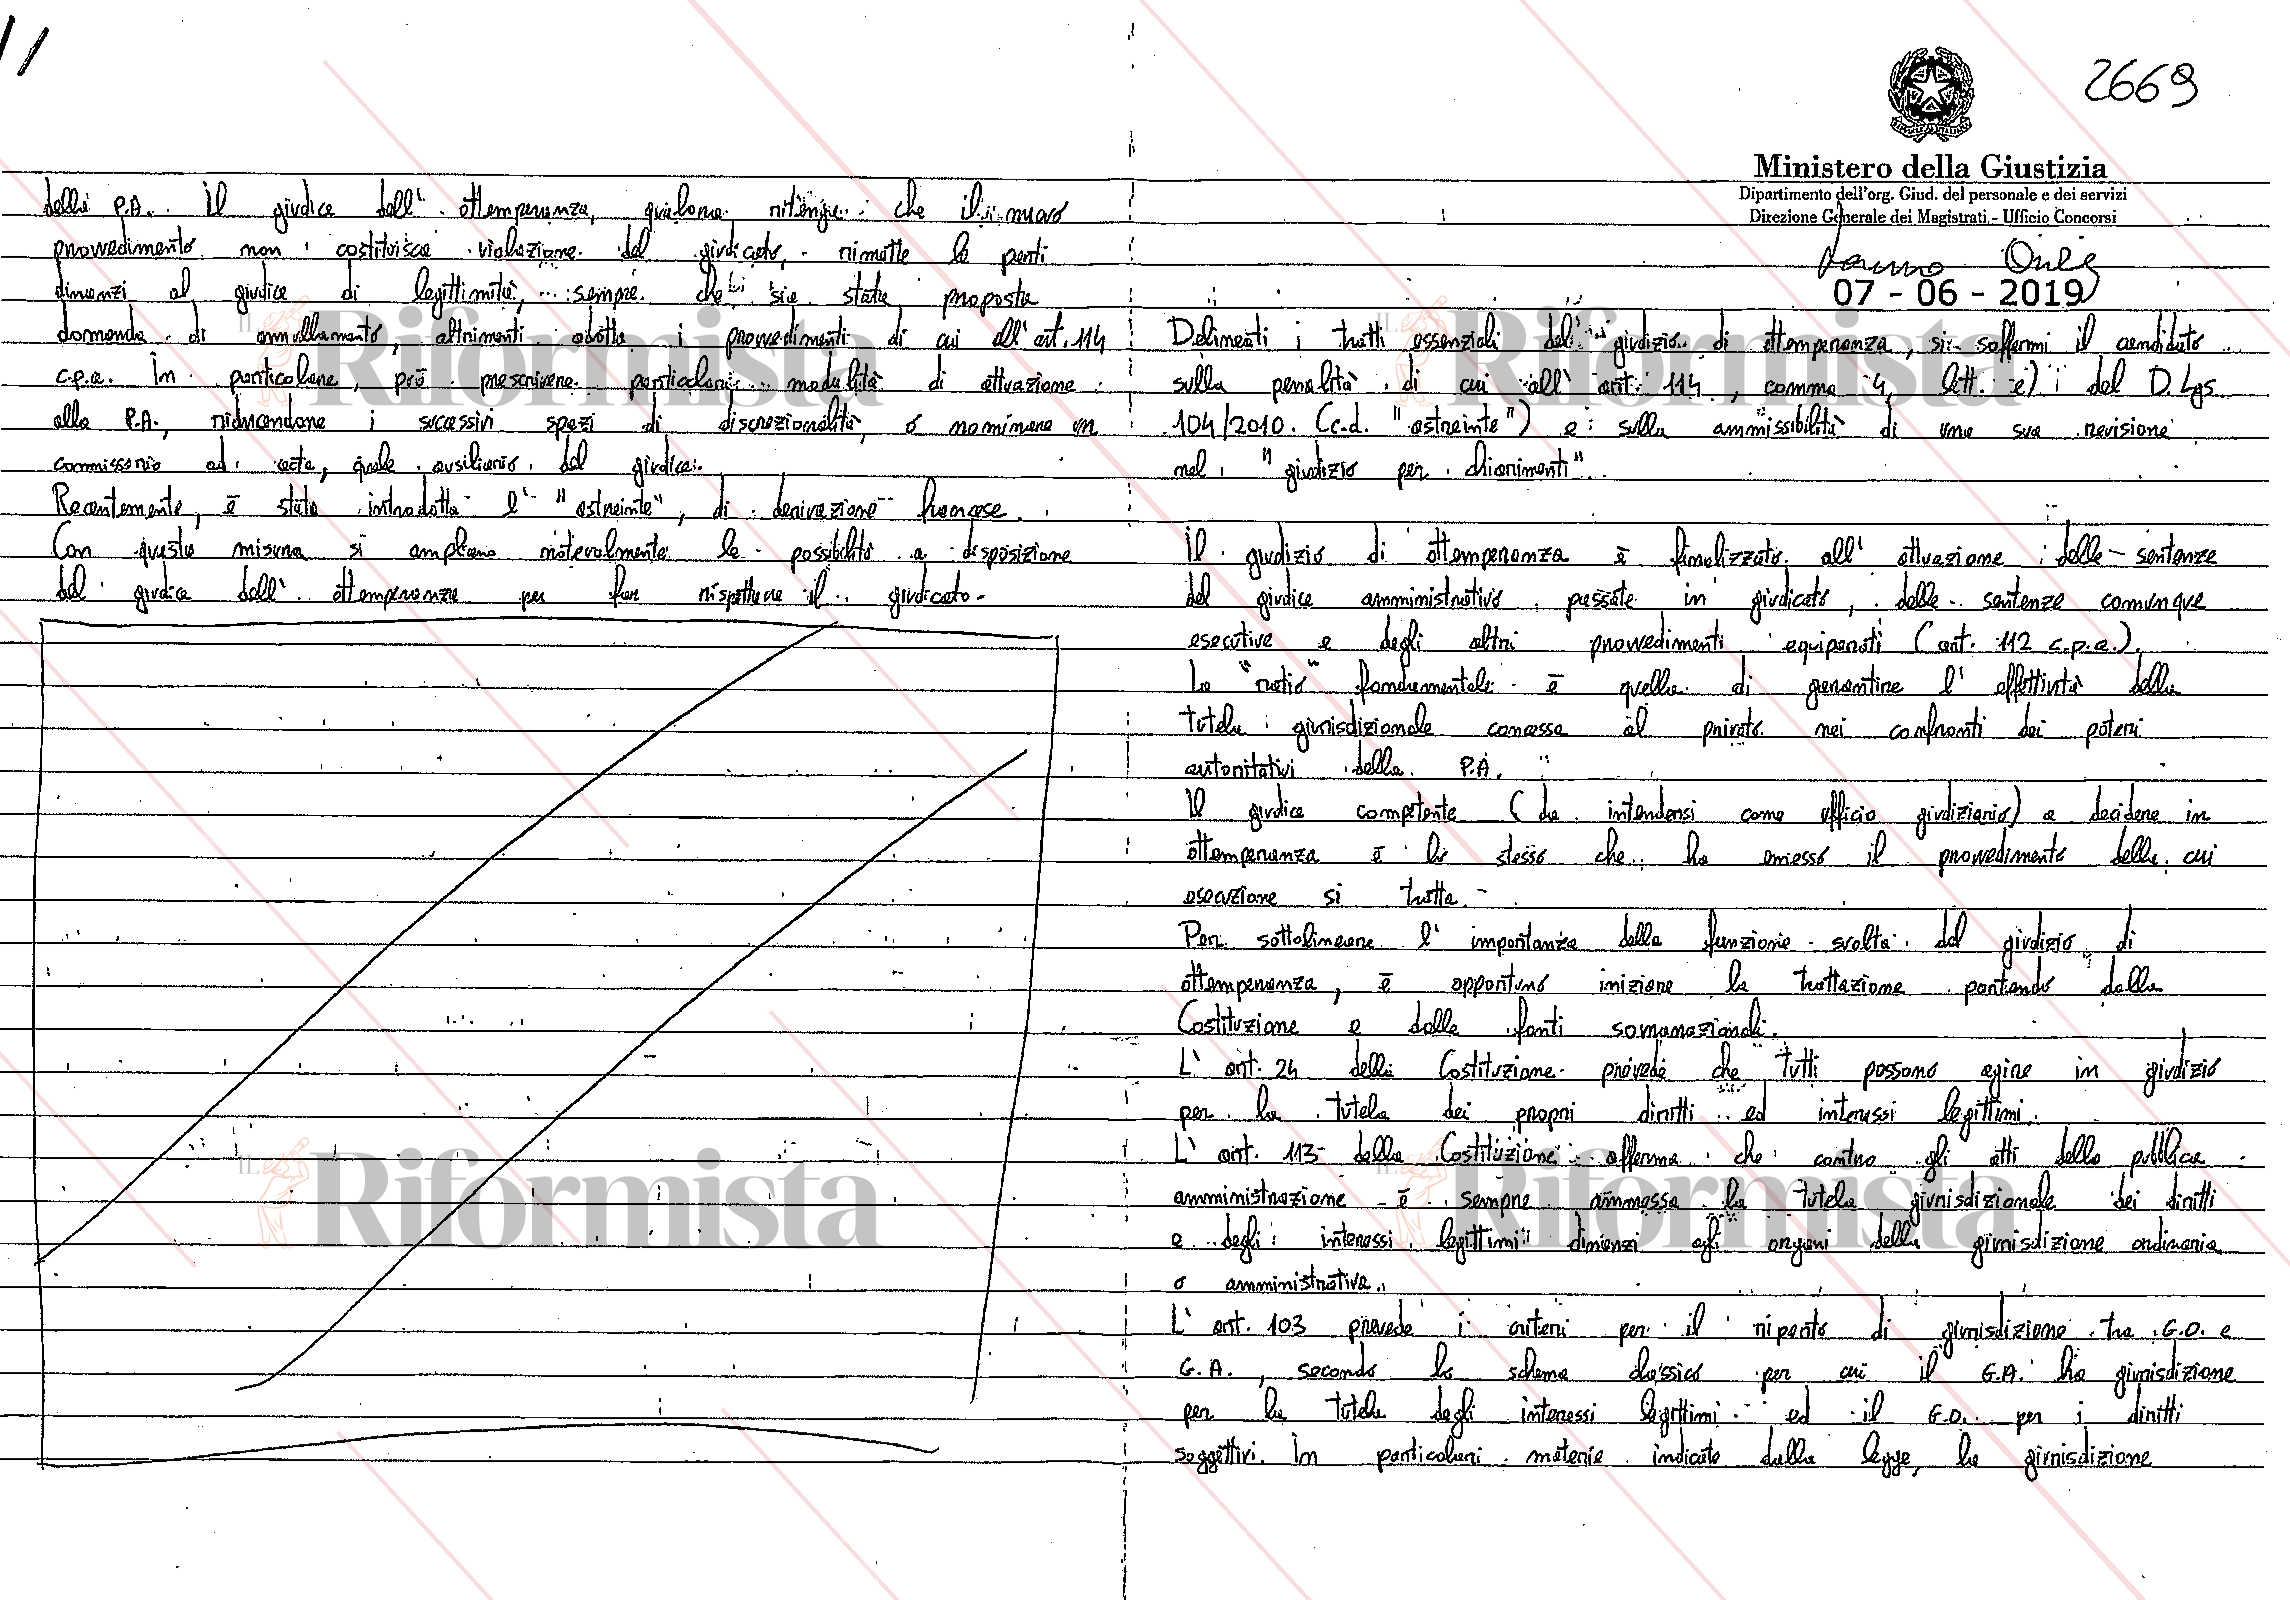 della P.A.. Il giudice dell'ottemperanza, qualora ritenga che il nuovo
provvedimento non costituisca violazione del giudicato, rimette le parti
dinanzi al giudice di legittimità, sempre che sia stata proposta
domanda di annullamento, altrimenti adotta i provvedimenti di cui all'art. 114
c.p.a. In particolare, può prescrivere particolari modalità di attuazione
alla P.A., riducendone i successivi spazi di discrezionalità, o nominare un
commissario ad acta, quale ausiliario del giudice.
Recentemente, è stata introdotta l'"astreinte", di derivazione francese.
Con questa misura si ampliano notevolmente le possibilità a disposizione
del giudice dell'ottemperanza per far rispettare il giudicato.
IL Riformista
IL Riformista
2669
Ministero della Giustizia
Dipartimento dell'org. Giud. del personale e dei servizi
Direzione Generale dei Magistrati - Ufficio Concorsi
07 - 06 - 2019
Delineati i tratti essenziali del giudizio di ottemperanza, si soffermi il candidato
sulla penalità di cui all'art. 114, comma 4, lett. e) del D.Lgs.
104/2010 (c.d. "astreinte") e sulla ammissibilità di una sua revisione
nel "giudizio per chiarimenti".
Il giudizio di ottemperanza è finalizzato all'attuazione delle sentenze
del giudice amministrativo passate in giudicato, delle sentenze comunque
esecutive e degli altri provvedimenti equiparati (art. 112 c.p.a.).
La "ratio" fondamentale è quella di garantire l'effettività della
tutela giurisdizionale concessa al privato nei confronti dei poteri
autoritativi della P.A.
Il giudice competente (da intendersi come ufficio giudiziario) a decidere in
ottemperanza è lo stesso che ha emesso il provvedimento della cui
esecuzione si tratta.
Per sottolineare l'importanza della funzione svolta dal giudizio di
ottemperanza, è opportuno iniziare la trattazione partendo dalla
Costituzione e dalle fonti sovranazionali.
L'art. 24 della Costituzione prevede che tutti possono agire in giudizio
per la tutela dei propri diritti ed interessi legittimi.
L'art. 113 della Costituzione afferma che contro gli atti della pubblica
amministrazione è sempre ammessa la tutela giurisdizionale dei diritti
e degli interessi legittimi dinanzi agli organi della giurisdizione ordinaria
o amministrativa.
L'art. 103 prevede i criteri per il riparto di giurisdizione tra G.O. e
G.A., secondo lo schema classico per cui il G.A. ha giurisdizione
per la tutela degli interessi legittimi ed il G.O. per i diritti
soggettivi. In particolari materie indicate dalla legge, la giurisdizione
IL Riformista
IL Riformista